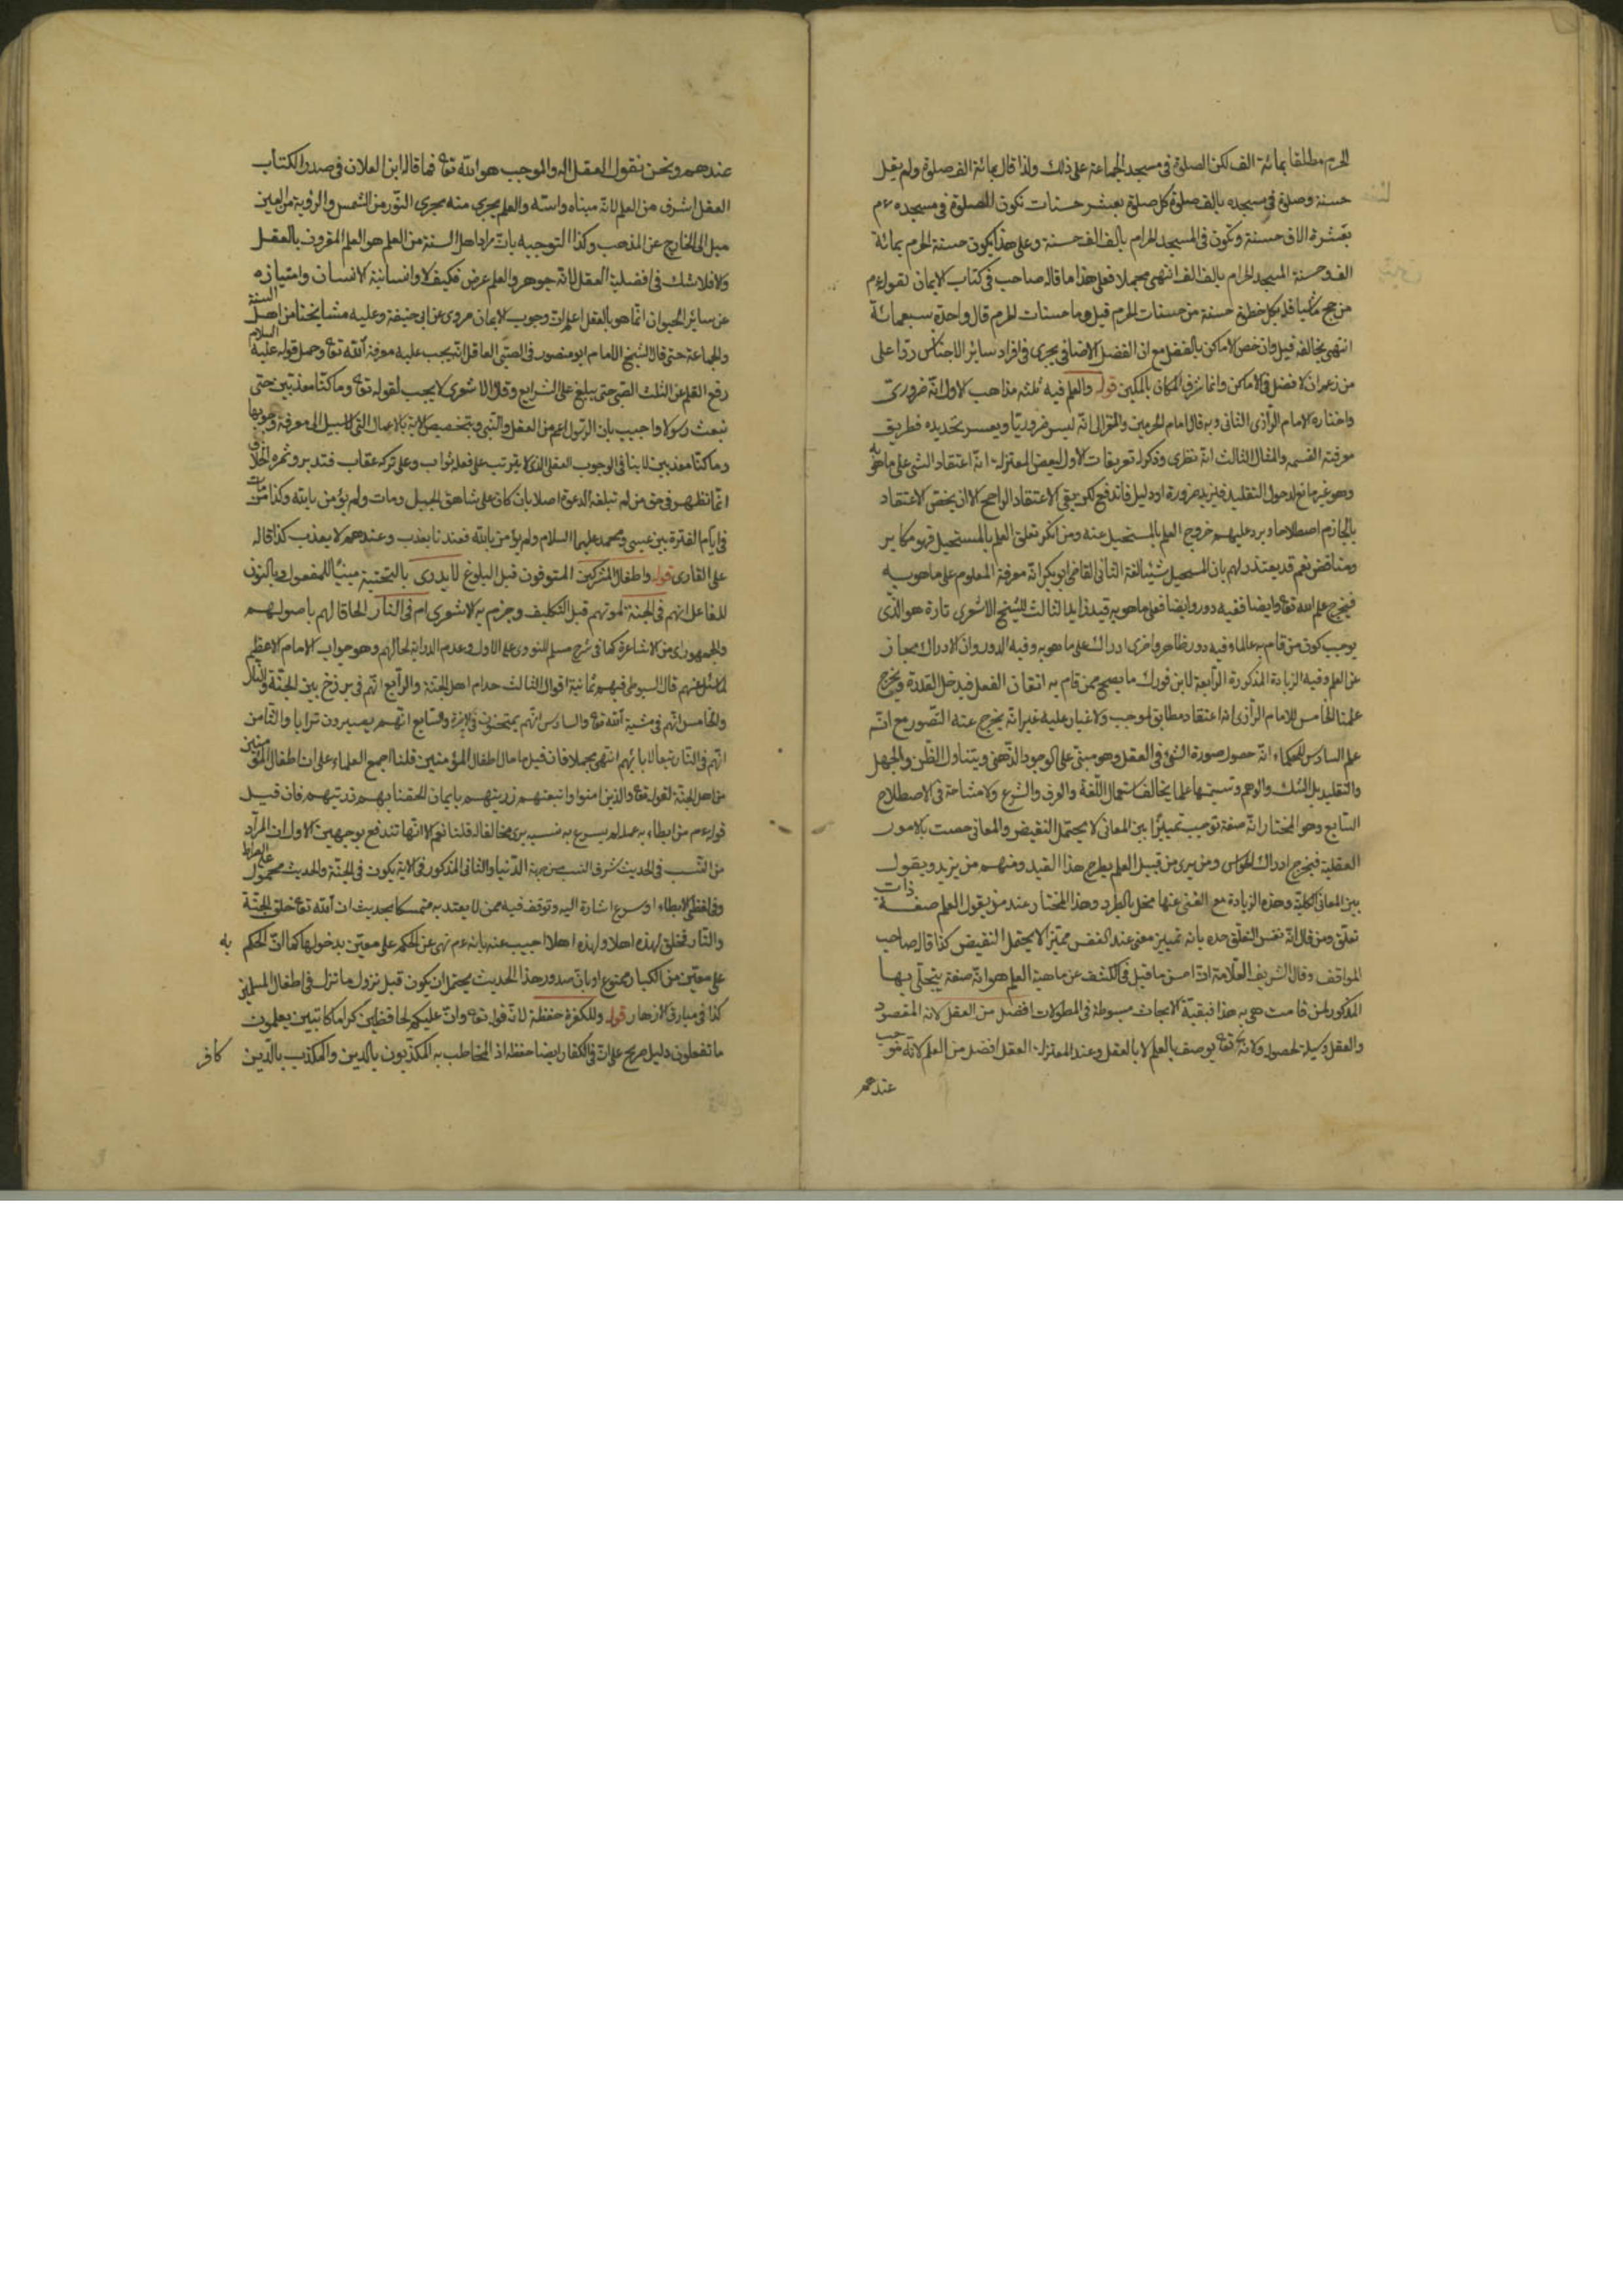 الحرم مطلقا بمائة الف لكن الصلوة فى مسجد الجماعة على ذلك ولذا قال بمائة الف صلوة ولم يقل
حسنة وصلوة فى مسجده بالف صلوة كل صلوة بعشر حسنات تكون الصلوة فى مسجده عم
بعشرة الاف حسنة وتكون فى المسجد الحرام بالف الف حسنة وعلى هذا يكون حسنة الحرم بمائة
الف وحسنة المسجد الحرام بالف الف انتهى مجملا فعلى هذا ما قاله صاحب فى كتاب الايمان لقوله عم
من حج ماشيا فله بكل خطوة حسنة من حسنات الحرم قيل وما حسنات الحرم قال واحدة بسبعمائة
انتهى يخالفه قيل وان خص الاماكن بالفضل مع ان الفضل الاضافى يجرى فى افراد سائر الاجناس ردا على
من زعم ان لا فضل فى الاماكن وانما شرف المكان بالمكين قوله والعلم فيه ثلثة مذاهب الاول انه ضرورى
واختاره الامام الرازى الثانى وبه قال امام الحرمين والغزالى انه ليس ضروريا ويعسر تحديده فطريق
معرفته القسمة والمثال الثالث انه نظرى وذكروا له تعريفات الاول لبعض المعتزلة انه اعتقاد الشئ على ما هو به
وهو غير مانع لدخول التقليد فيزيد ضرورة او دليل فاندفع لكن يبقى الاعتقاد الراجح الا ان يخص الاعتقاد
بالجازم اصطلاحا ويرد عليهم خروج العلم بالمستحيل عنه ومن انكر تعلق العلم بالمستحيل فهو مكابر
ومناقض نعم قد يعتذر لهم بان المستحيل شئ لغة الثانى القاضى ابو بكر انه معرفة المعلوم على ما هو به
فيخرج علم الله تعا وايضا ففيه دور وايضا فعلى ما هو به قيد زايد الثالث للشيخ الاشعرى تارة هو الذى
يوجب كون من قام به عالما وفيه دور ظاهر واخرى ادراك على ما هو به وفيه الدور وان الادراك مجاز
عن العلم وفيه الزيادة المذكورة الرابعة لابن فورك ما يصح ممن قام به اتقان الفعل فيدخل القدرة ويخرج
علمنا الخامس للامام الرازى انه اعتقاد مطابق لموجب ولا غبار عليه غير انه يخرج عنه التصور مع انه
علم السادس للحكماء انه حصول صورة الشئ فى العقل وهو مبنى على الوجود الذهنى ويتناول الظن والجهل
والتقليد بل الشك والوهم وتسميتها علما يخالف استعمال اللغة والعرف والشرع ولا مشاحة فى الاصطلاح
السابع وهو المختار انه صفة توجب تمييزا بين المعانى لا يحتمل النقيض والمعانى خصت بالامور
العقلية فيخرج ادراك الحواس ومن يرى من قبيل العلم يطرح هذا القيد ومنهم من يزيد ويقول
بين المعانى الكلية وهذه الزيادة مع الغنى عنها مخل بالطرد وهذا المختار عند من يقول العلم صفة ذات
تعلق ومن قال انه نفس التعلق حده بانه تمييز معنى عند النفس تمييزا لا يحتمل النقيض كذا قاله صاحب
المواقف وقال الشريف العلامة ان احسن ما قيل فى الكشف عن ماهية العلم هو انه صفة يتجلى بها
المذكور لمن قامت هى به هذا فبقية الابحاث مبسوطة فى المطولات افضل من العقل لانه المقصود
والعقل وسيلة لحصوله ولانه تعا يوصف بالعلم لا بالعقل وعند المعتزلة العقل افضل من العلم لانه موجب
عندهم
عندهم ونحن نقول العقل آلة والموجب هو الله تعا فما قاله ابن العلان فى صدر الكتاب
العقل اشرف من العلم لانه مبناه واسه والعلم يجرى منه مجرى النور من الشمس والرؤية من العين
ميل الى الخارج عن المذهب وكذا التوجيه بان مراد اهل السنة من العلم هو العلم المقرون بالعقل
والا فلا شك فى افضلية العقل لانه جوهر والعلم عرض فكيف لا وانسانية الانسان وامتيازه
عن سائر الحيوان انما هو بالعقل اعلم ان وجوب الايمان مروى عن ابى حنيفة وعليه مشايخنا من اهل السنة
والجماعة حتى قال الشيخ الامام ابو منصور فى الصبى العاقل انه يجب عليه معرفة الله تعا وحمل قوله عليه السلام
رفع القلم عن الثلث الصبى حتى يبلغ على الشرايع وقال الاشعرى لا يجب لقوله تعا وما كنا معذبين حتى
نبعث رسولا واجيب بان الرسول اعم من العقل والنبى وبتخصيص الاية بالاعمال التى لا سبيل الى معرفة وجوبها
وما كنا معذبين لا ينافى الوجوب العقلى الذى لا يترتب على فعله ثواب وعلى تركه عقاب فتدبر وثمرة الخلاف
انما تظهر فى حق من لم تبلغه الدعوة اصلا بان كان على شاهق الجبل ومات ولم يؤمن بالله وكذا من مات
فى ايام الفترة بين عيسى ومحمد عليهما السلام ولم يؤمن بالله فعندنا يعذب وعندهم لا يعذب كذا قاله
على القارى قوله واطفال المشركين المتوفون قبل البلوغ لا يدرى بالتحتية مبنيا للمفعول وبالنون
للفاعل انهم فى الجنة لموتهم قبل التكليف وجزم به الاشعرى ام فى النار الحاقا لهم باصولهم
والجمهور اى من الاشاعرة كما فى شرح مسلم للنووى على الاول وعدم الدراية لحالهم وهو جواب الامام الاعظم
لما سئل عنهم قال السيوطى فيهم ثمانية اقوال الثالث خدام اهل الجنة والرابع انهم فى برزخ بين الجنة والنار
والخامس انهم فى مشية الله تعا والسادس انهم يمتحنون فى الاخرة والسابع انهم يصيرون ترابا والثامن
انهم فى النار تبعا لابائهم انتهى مجملا فان قيل ما مال اطفال المؤمنين قلنا اجمع العلماء على ان اطفال المؤمنين
من اهل الجنة لقوله تعا والذين امنوا واتبعتهم ذريتهم بايمان الحقنا بهم ذريتهم فان قيل
قوله عم من ابطاء به عمله لم يسرع به نسبه يرى مخالفا له قلنا نعم الا انها تندفع بوجهين الاول ان المراد
من النسب فى الحديث شرف النسب من جهة الدنيا والثانى المذكور فى الاية يكون فى الجنة والحديث محمول على الصراط
وفى لفظى الابطاء او سرع اشارة اليه وتوقف فيه ممن لا يعتد به متمسكا بحديث ان الله تعا خلق الجنة
والنار فخلق لهذه اهلا ولهذه اهلا اجيب عنه بانه عم نهى عن الحكم على معين بدخولها كما ان الحكم به
على معين من الكبار ممنوع او بان صدور هذا الحديث يحتمل ان يكون قبل نزول ما نزل فى اطفال المسلمين
كذا فى مبارق الازهار قوله وللكفرة حفظة لان قوله تعا وان عليكم لحافظين كراما كاتبين يعلمون
ما تفعلون دليل صريح على ان فى الكفار ايضا حفظة اذ المخاطب به المكذبون بالدين والمكذب بالدين كافر